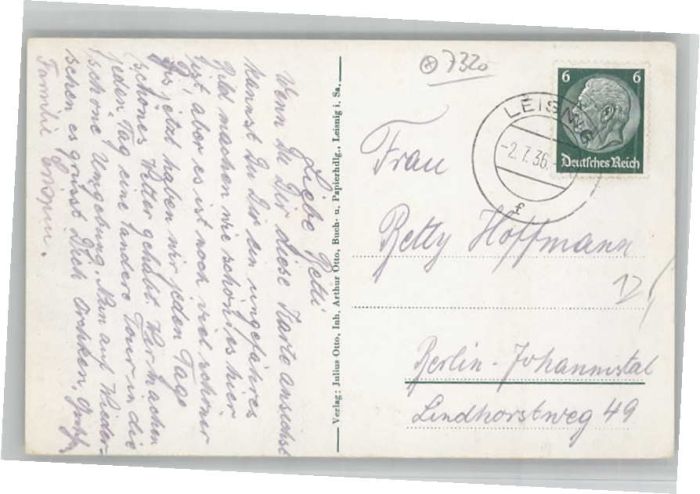 Liebe Betti
Wenn Du Dir diese Karte ansiehst
kannst Du Dir ein ungefähres
Bild machen wie schön es hier
ist, aber es ist noch viel schöner
Bis jetzt haben wir jeden Tag
schönes Wetter gehabt. Wir machen
jeden Tag eine andere Tour in die
schöne Umgebung. Nun auf Wieder-
sehen es grüsst Dich
Familie
Verlag: Julius Otto, Inh. Arthur Otto, Buch- u. Papierhdlg., Leisnig i. Sa.
7320
6 6
Deutsches Reich
LEISNIG
-2.7.36.
Frau
Betty Hoffmann
Berlin-Johannistal
Lindhorstweg 49